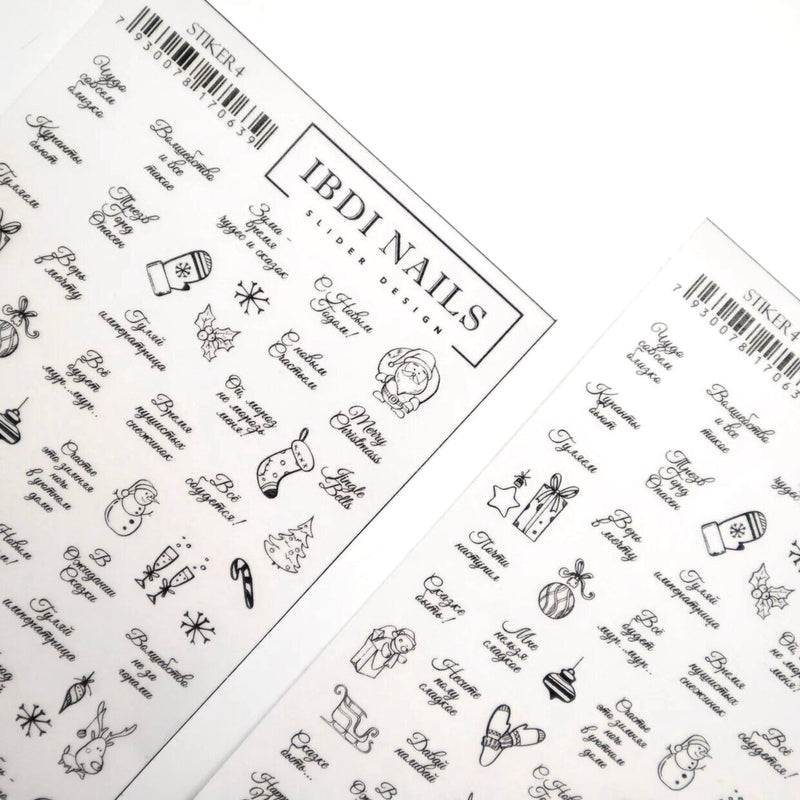 STIKER 4
7 930078 170639
IBDI NAILS
SLIDER DESIGN
Чудо
совсем
близко
Куранты
бьют
Волшебство
и все
такое
Гуляем
Трезв
Горд
Опасен
Зима -
время
чудес и сказок
Верь
в мечту
С Новым
Годом!
Гуляй
императрица
С новым
Счастьем
Всё
будет
мур.. мур...
Ой, мороз
не морозь
меня!
Merry
Christmass
Время
пушистых
снежинок
Jingle
Bells
Счастье
это зимняя
ночь
в уютном
доме
Всё
сбудется!
Новым
В
Ожидании
Сказки
Гуляй
императрица
Волшебство
не за
горами
STIKER 4
7 930078 1706
Чудо
совсем
близко
Куранты
бьют
Волшебство
и все
такое
Гуляем
Трезв
Горд
Опасен
Верь
в мечту
Почти
наступил
Гуляй
императрица
Сказке
быть!
Мне
нельзя
сладкое
Всё
будет
мур.. мур...
Несите
попу
сладкое
Время
пушистых
снежинок
Счастье
это зимняя
ночь
в уютном
доме
Всё
сбудется!
Сказке
быть...
Давай
наливай
С Новым